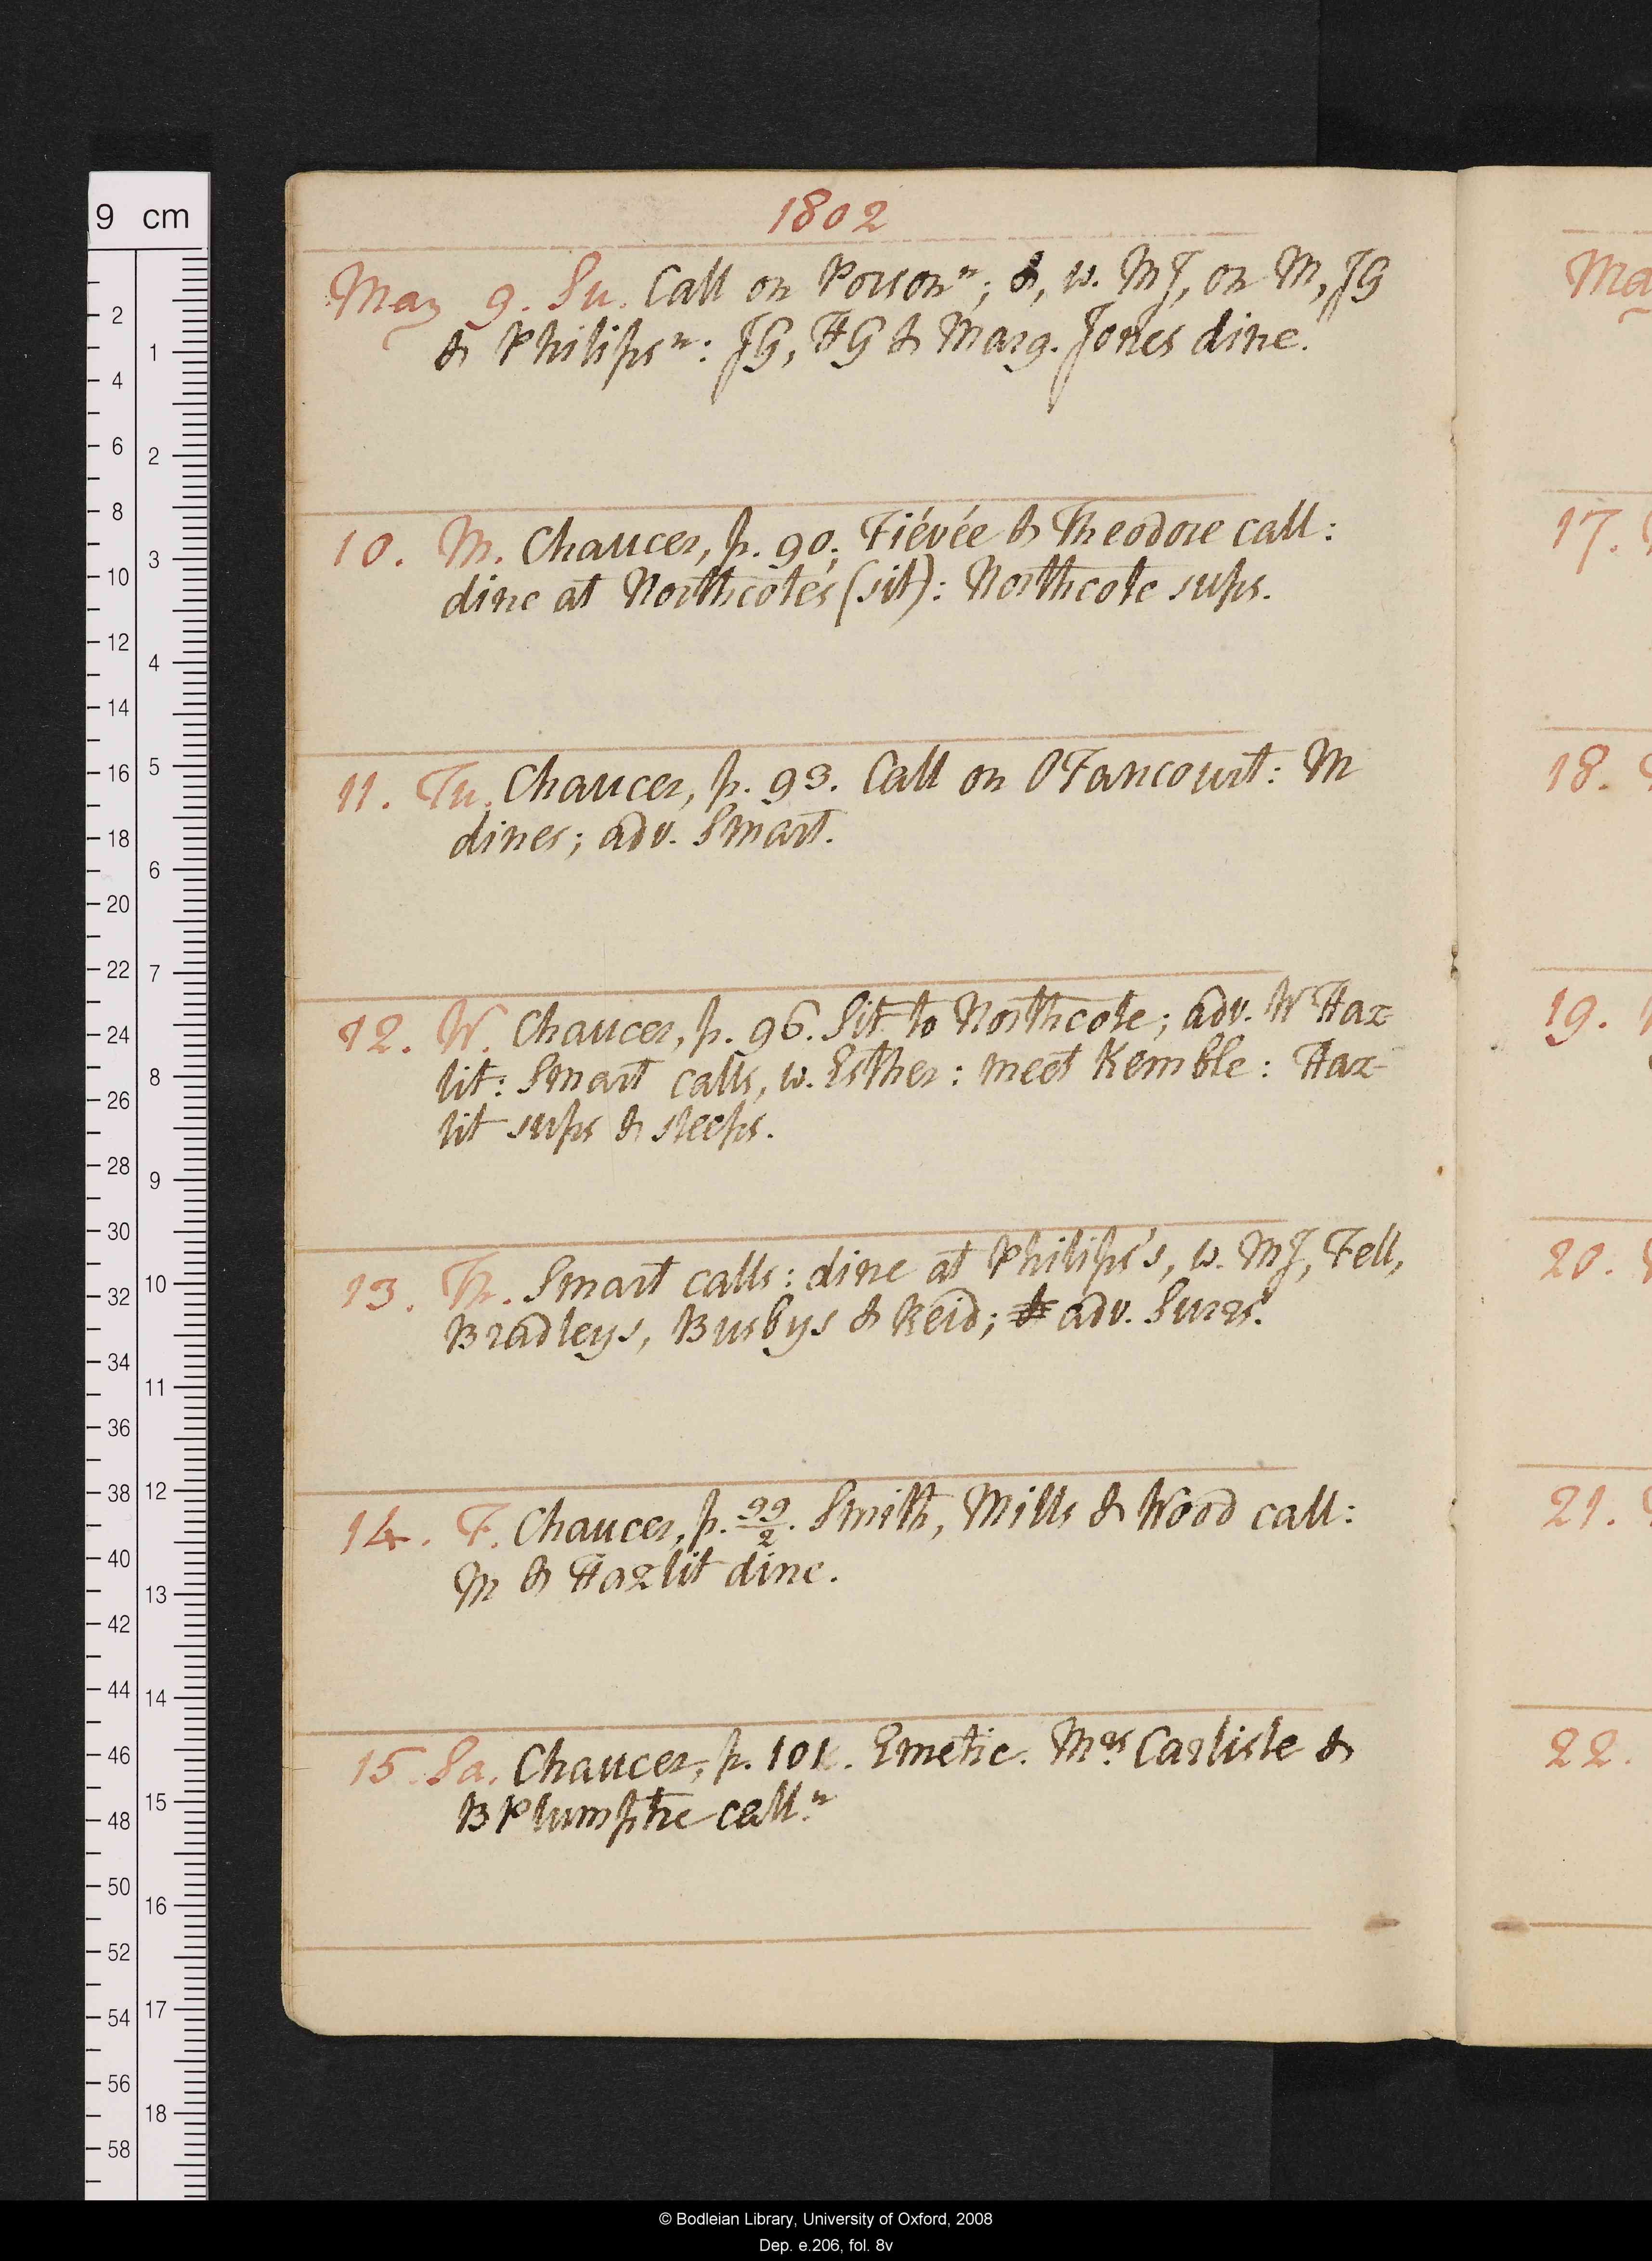 1802
May 9. Su. Call on Porson ⁿ; &, w. MJ, on M, JG
& Philips ⁿ: JG, HG & Marg. Jones dine.
10. M. Chaucer, p. 90. Fiévée & Theodore call:
dine at Northcote's (sit): Northcote sups.
11. Tu. Chaucer, p. 93. Call on OFancourt: M
dines; adv. Smart.
12. W. Chaucer, p. 96. Sit to Northcote; adv. W Haz-
lit: Smart calls, w. Esther: meet Kemble: Haz-
lit sups & sleeps.
13. Th. Smart calls: dine at Philips's, w. MJ, Fell,
Bradleys, Busbys & Reid; & adv. Surrs.
14. F. Chaucer, p. 99/2. Smith, Mills & Wood call:
M & Hazlit dine.
15. Sa. Chaucer, p. 101. Emetic. Mrs Carlisle &
B Plumptre call ⁿ
Ma
17.
18.
19.
20.
21.
22.
9 cm
2
4
6
8
10
12
14
16
18
20
22
24
26
28
30
32
34
36
38
40
42
44
46
48
50
52
54
56
58
1
2
3
4
5
6
7
8
9
10
11
12
13
14
15
16
17
18
© Bodleian Library, University of Oxford, 2008
Dep. e.206, fol. 8v